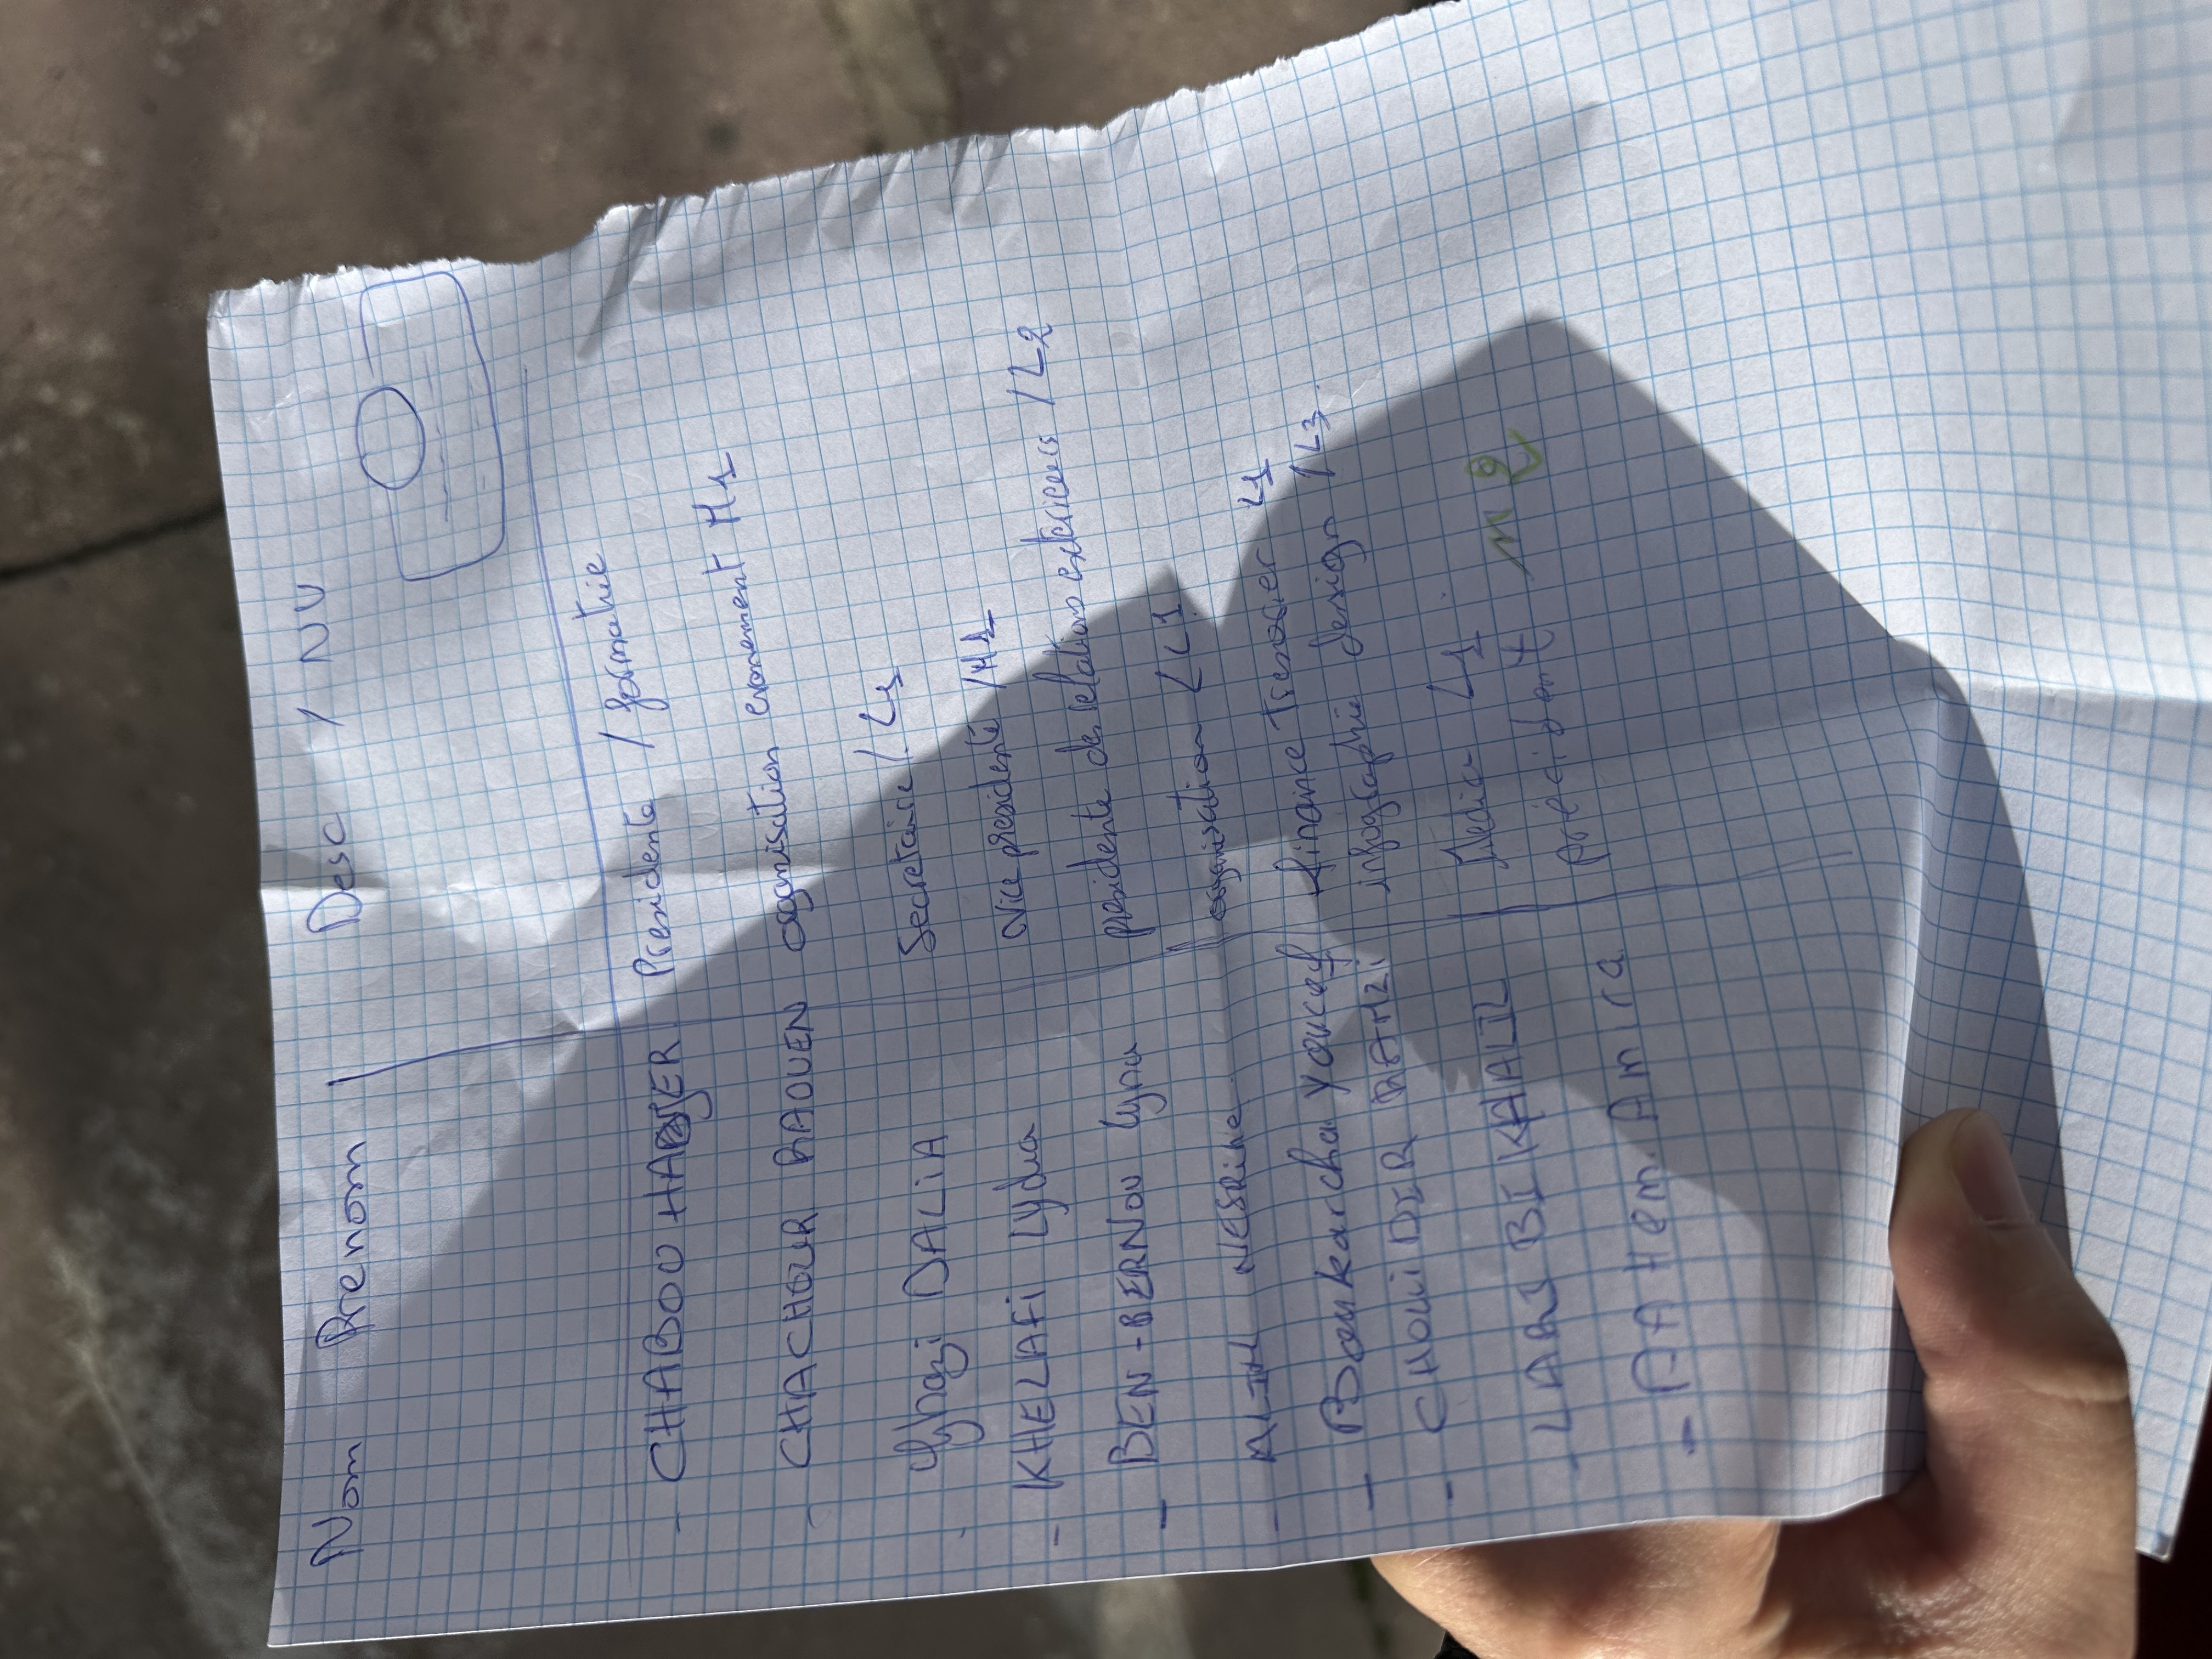 Nom Prenom Desc / NV
- CHABOU HADJER Presidente / formatrie
- CHACHOUR RAOUEN organisation evonement M1
- Ghazi DALiA Secretaire / L1
- KHELAFi Lydia vice presidente / M1
- BEN-BERNOU lyna presidente de relations exterieurs / L2
- NESRine organisation L1
- Boukarcha Youcef finance Tresorier L1
- CHOUiDER RAMZi infographie design / L3
- LARBI KHALIL Media L1
- Amira président M2